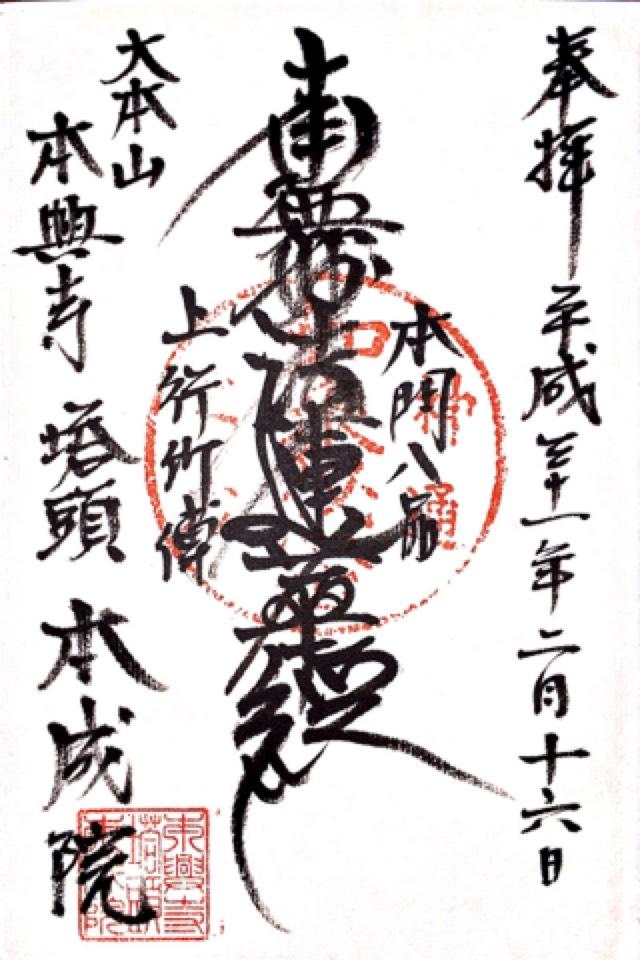 奉拝 平成三十一年二月十六日
本門八品
南無妙法蓮華経
上行所傳
大本山
本興寺 塔頭 本成院
神通
本興寺
塔頭